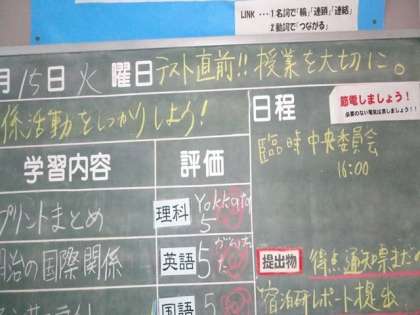 LINK ･･･ 1.名詞で「輪」「連鎖」「連結」
2.動詞で「つながる」
月15日火曜日 テスト直前!! 授業を大切に。
係活動をしっかりしよう!
日程
節電しましょう！
必要のない電気は消しましょう！
学習内容
評価
臨時中央委員会
16:00
プリントまとめ
理科
5
明治の国際関係
英語
5
提出物
得点通知票まだの
国語
5
宿泊研レポート提出